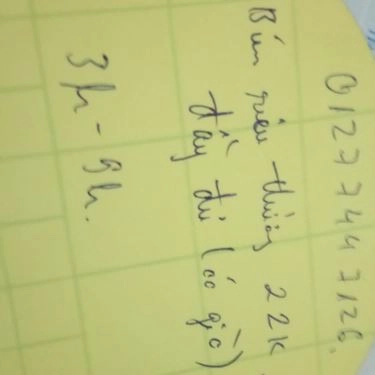 01277447126.
Bún riêu thường 22K
đầy đủ (có giò)
3h - 9h.